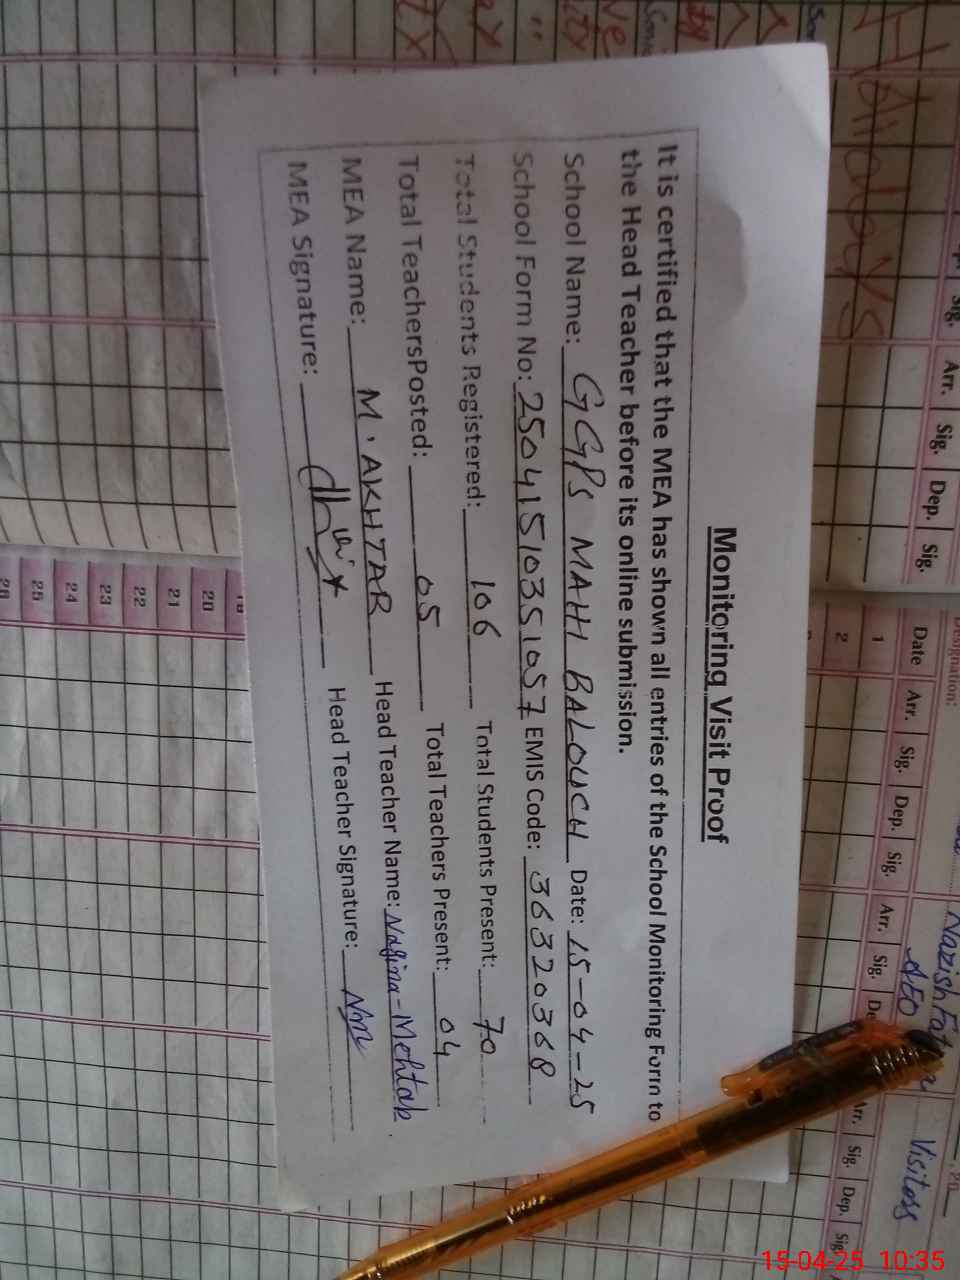 Monitoring Visit Proof
It is certified that the MEA has shown all entries of the School Monitoring Form to
the Head Teacher before its online submission.
School Name: GGPS MAHI BALOUCH Date: 15-04-25
School Form No: 25041510351057 EMIS Code: 36320368
Total Students Registered: 106 Total Students Present: 70
Total TeachersPosted: 05 Total Teachers Present: 04
MEA Name: M. AKHTAR Head Teacher Name: Nagina-Mehtab
MEA Signature: Head Teacher Signature:
Holidays
Sig. Arr. Sig. Dep. Sig.
Designation:
Date Arr. Sig. Dep. Sig. Arr. Sig. Arr. Sig. Dep. Sig
1
2
20
21
22
23
24
25
26
Nazish
AEO
Visitors
15-04-25 10:35